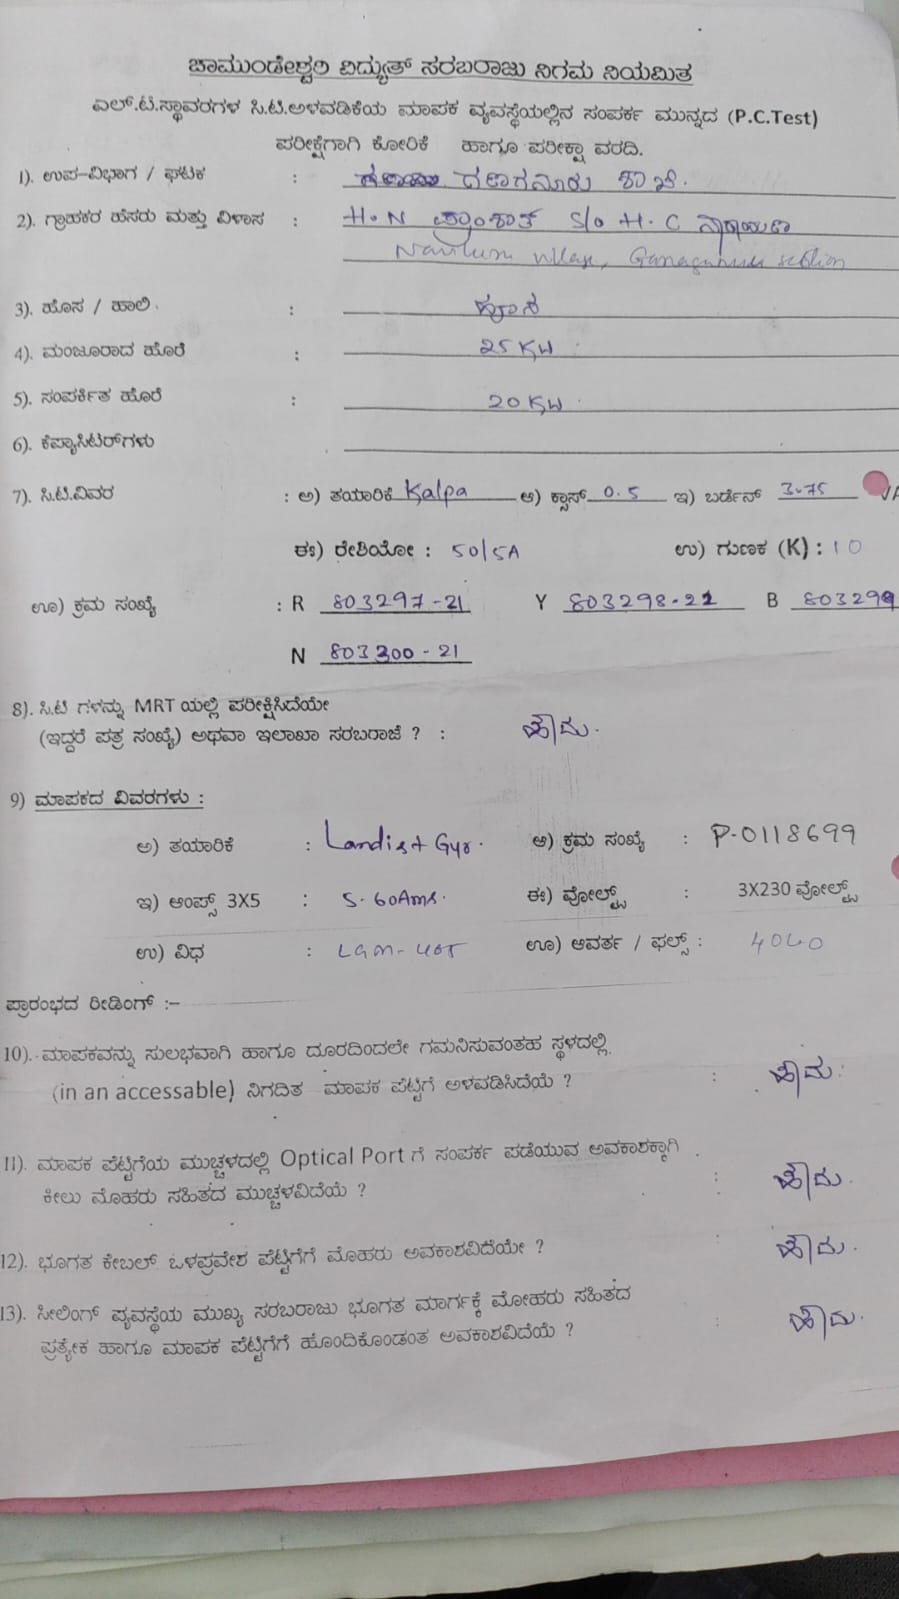 ಚಾಮುಂಡೇಶ್ವರಿ ವಿದ್ಯುತ್ ಸರಬರಾಜು ನಿಗಮ ನಿಯಮಿತ
ಎಲ್.ಟಿ.ಸ್ಥಾವರಗಳ ಸಿ.ಟಿ.ಅಳವಡಿಕೆಯ ಮಾಪಕ ವ್ಯವಸ್ಥೆಯಲ್ಲಿನ ಸಂಪರ್ಕ ಮುನ್ನದ (P.C.Test)
ಪರೀಕ್ಷೆಗಾಗಿ ಕೋರಿಕೆ ಹಾಗೂ ಪರೀಕ್ಷಾ ವರದಿ.
1). ಉಪ-ವಿಭಾಗ / ಘಟಕ : ಶಾಖೆ.
2). ಗ್ರಾಹಕರ ಹೆಸರು ಮತ್ತು ವಿಳಾಸ : H.N S/o H.C ನಾರಾಯಣ
section
3). ಹೊಸ / ಹಾಲಿ . :
4). ಮಂಜೂರಾದ ಹೊರೆ : 25 KW
5). ಸಂಪರ್ಕಿತ ಹೊರೆ : 20 KW .
6). ಕೆಪ್ಯಾಸಿಟರ್‌ಗಳು
7). ಸಿ.ಟಿ.ವಿವರ : ಅ) ತಯಾರಿಕೆ Kalpa ಆ) ಕ್ಲಾಸ್ 0.5 ಇ) ಬರ್ಡೆನ್ 3.75
ಈ) ರೇಶಿಯೋ : 50/5A ಉ) ಗುಣಕ (K) : 10
ಊ) ಕ್ರಮ ಸಂಖ್ಯೆ : R 803297-21 Y 803298-21 B 803299
N 803300-21
8). ಸಿ.ಟಿ ಗಳನ್ನು MRT ಯಲ್ಲಿ ಪರೀಕ್ಷಿಸಿದೆಯೇ
(ಇದ್ದರೆ ಪತ್ರ ಸಂಖ್ಯೆ) ಅಥವಾ ಇಲಾಖಾ ಸರಬರಾಜೆ ? : ಹೌದು.
9) ಮಾಪಕದ ವಿವರಗಳು :
ಅ) ತಯಾರಿಕೆ : Landis+Gyr. ಆ) ಕ್ರಮ ಸಂಖ್ಯೆ : P-0118699
ಇ) ಆಂಪ್ಸ್ 3X5 : 5-60Ams. ಈ) ವೋಲ್ಟ್ಸ್ : 3X230 ವೋಲ್ಟ್ಸ್
ಉ) ವಿಧ : ಊ) ಆವರ್ತ / ಫಲ್ಸ್ :
ಪ್ರಾರಂಭದ ರೀಡಿಂಗ್ :-
10). ಮಾಪಕವನ್ನು ಸುಲಭವಾಗಿ ಹಾಗೂ ದೂರದಿಂದಲೇ ಗಮನಿಸುವಂತಹ ಸ್ಥಳದಲ್ಲಿ
(in an accessable) ನಿಗದಿತ ಮಾಪಕ ಪೆಟ್ಟಿಗೆ ಅಳವಡಿಸಿದೆಯೆ ? : ಹೌದು.
11). ಮಾಪಕ ಪೆಟ್ಟಿಗೆಯ ಮುಚ್ಚಳದಲ್ಲಿ Optical Port ಗೆ ಸಂಪರ್ಕ ಪಡೆಯುವ ಅವಕಾಶಕ್ಕಾಗಿ
ಕೀಲು ಮೊಹರು ಸಹಿತದ ಮುಚ್ಚಳವಿದೆಯೆ ? : ಹೌದು.
12). ಭೂಗತ ಕೇಬಲ್ ಒಳಪ್ರವೇಶ ಪೆಟ್ಟಿಗೆಗೆ ಮೊಹರು ಅವಕಾಶವಿದೆಯೇ ? : ಹೌದು.
13). ಸೀಲಿಂಗ್ ವ್ಯವಸ್ಥೆಯ ಮುಖ್ಯ ಸರಬರಾಜು ಭೂಗತ ಮಾರ್ಗಕ್ಕೆ ಮೋಹರು ಸಹಿತದ
ಪ್ರತ್ಯೇಕ ಹಾಗೂ ಮಾಪಕ ಪೆಟ್ಟಿಗೆಗೆ ಹೊಂದಿಕೊಂಡಂತ ಅವಕಾಶವಿದೆಯೆ ? : ಹೌದು.